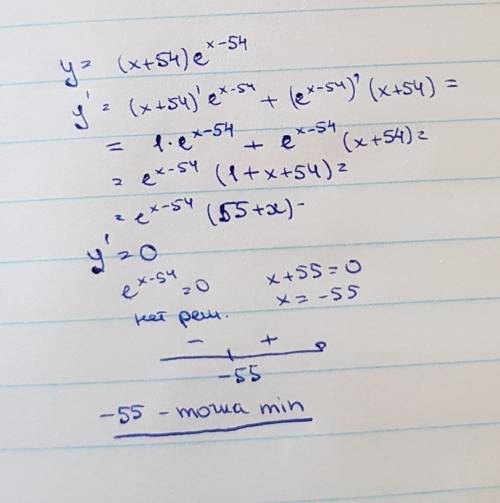 y = (x+54)e^{x-54}
y' = (x+54)' e^{x-54} + (e^{x-54})' (x+54) =
= 1·e^{x-54} + e^{x-54} (x+54) =
= e^{x-54} (1+x+54) =
= e^{x-54} (55+x) -
y' = 0
e^{x-54} = 0 x+55 = 0
нет реш. x = -55
- +
-55
-55 - точка min